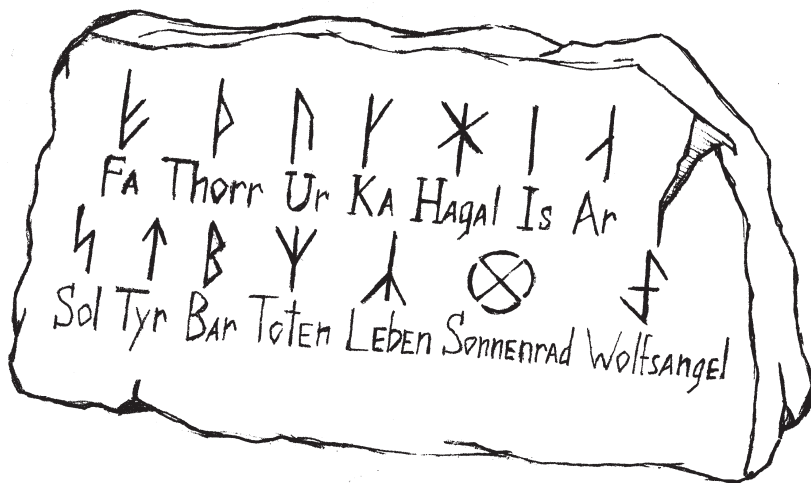 ᚠ ᚦ ᚢ ᚴ ᚼ ᛁ ᛆ
Fa Thorr Ur Ka Hagal Is Ar
ᛋ ᛏ ᛒ ᛉ ᛦ
Sol Tyr Bar Toten Leben Sonnenrad Wolfsangel